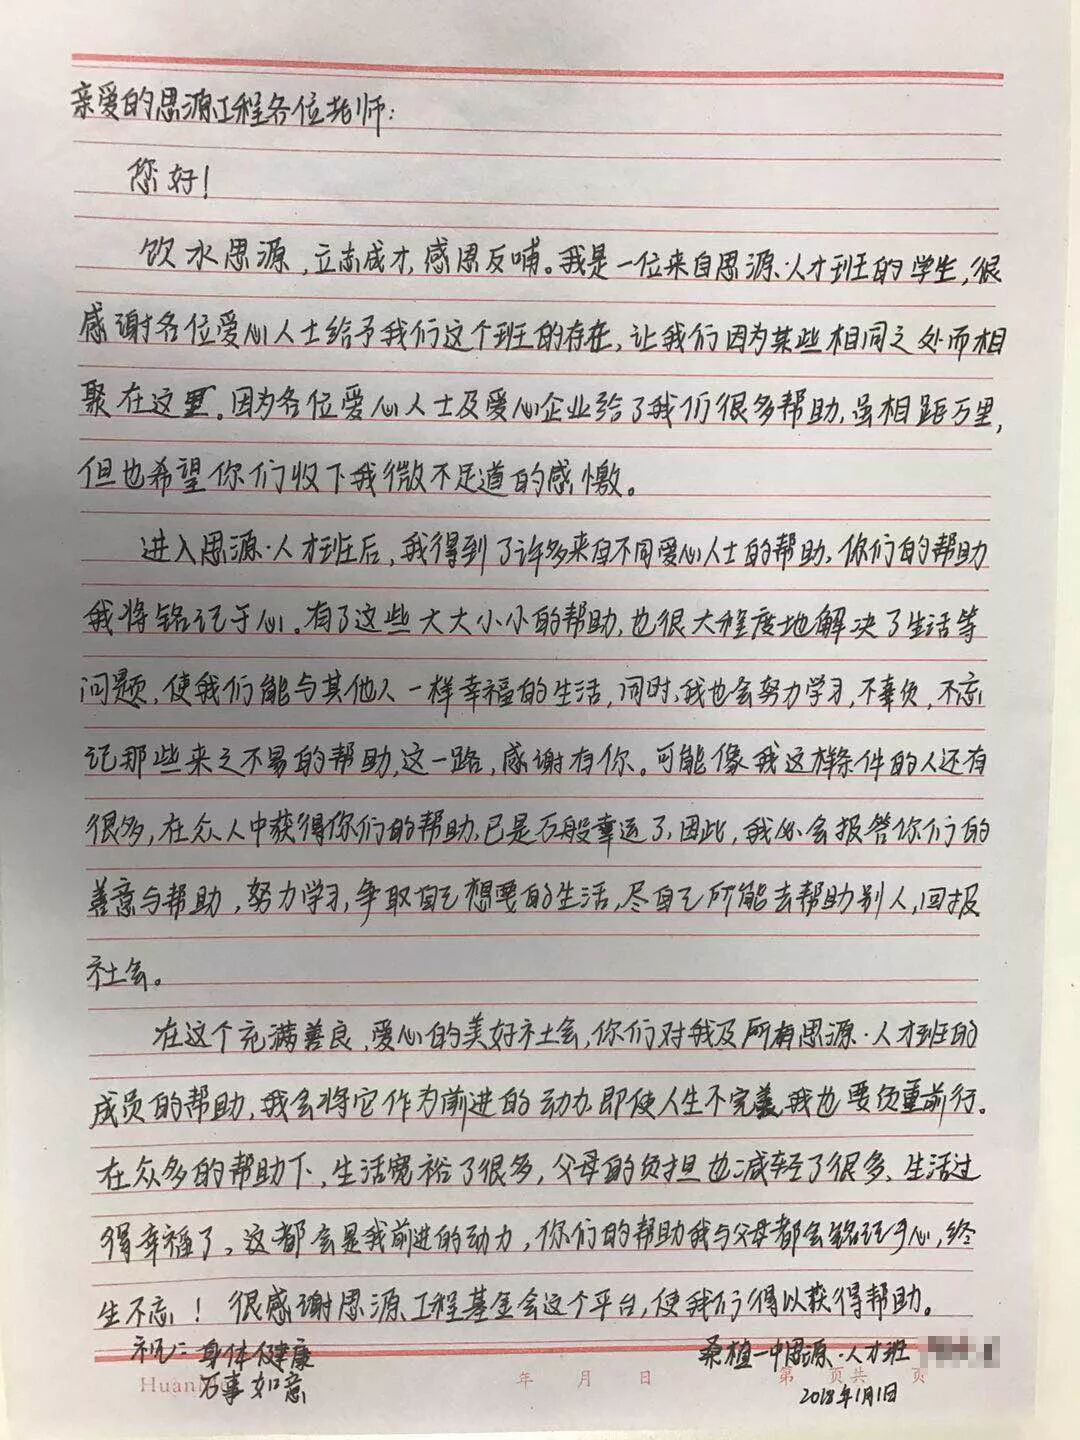 亲爱的思源工程各位老师:
您好!
饮水思源,立志成才,感恩反哺。我是一位来自思源·人才班的学生,很
感谢各位爱心人士给予我们这个班的存在,让我们因为某些相同之处而相
聚在这里。因为各位爱心人士及爱心企业给了我们很多帮助,虽相距万里,
但也希望你们收下我微不足道的感激。
进入思源·人才班后,我得到了许多来自不同爱心人士的帮助,你们的帮助
我将铭记于心。有了这些大大小小的帮助,也很大程度地解决了生活等
问题,使我们能与其他人一样幸福的生活,同时,我也会努力学习,不辜负,不忘
记那些来之不易的帮助,这一路,感谢有你。可能像我这样条件的人还有
很多,在众人中获得你们的帮助,已是万般幸运了,因此,我必会报答你们的
善意与帮助,努力学习,争取自己想要的生活,尽自己所能去帮助别人,回报
社会。
在这个充满善良,爱心的美好社会,你们对我及所有思源·人才班的
成员的帮助,我会将它作为前进的动力,即使人生不完美,我也要负重前行。
在众多的帮助下,生活宽裕了很多,父母的负担也减轻了很多,生活过
得幸福了。这都会是我前进的动力,你们的帮助我与父母都会铭记于心,终
生不忘!很感谢思源工程基金会这个平台,使我们得以获得帮助。
祝:身体健康
万事如意
桑植一中思源·人才班
Huan
年 月 日
第 页共 页
2018年1月1日